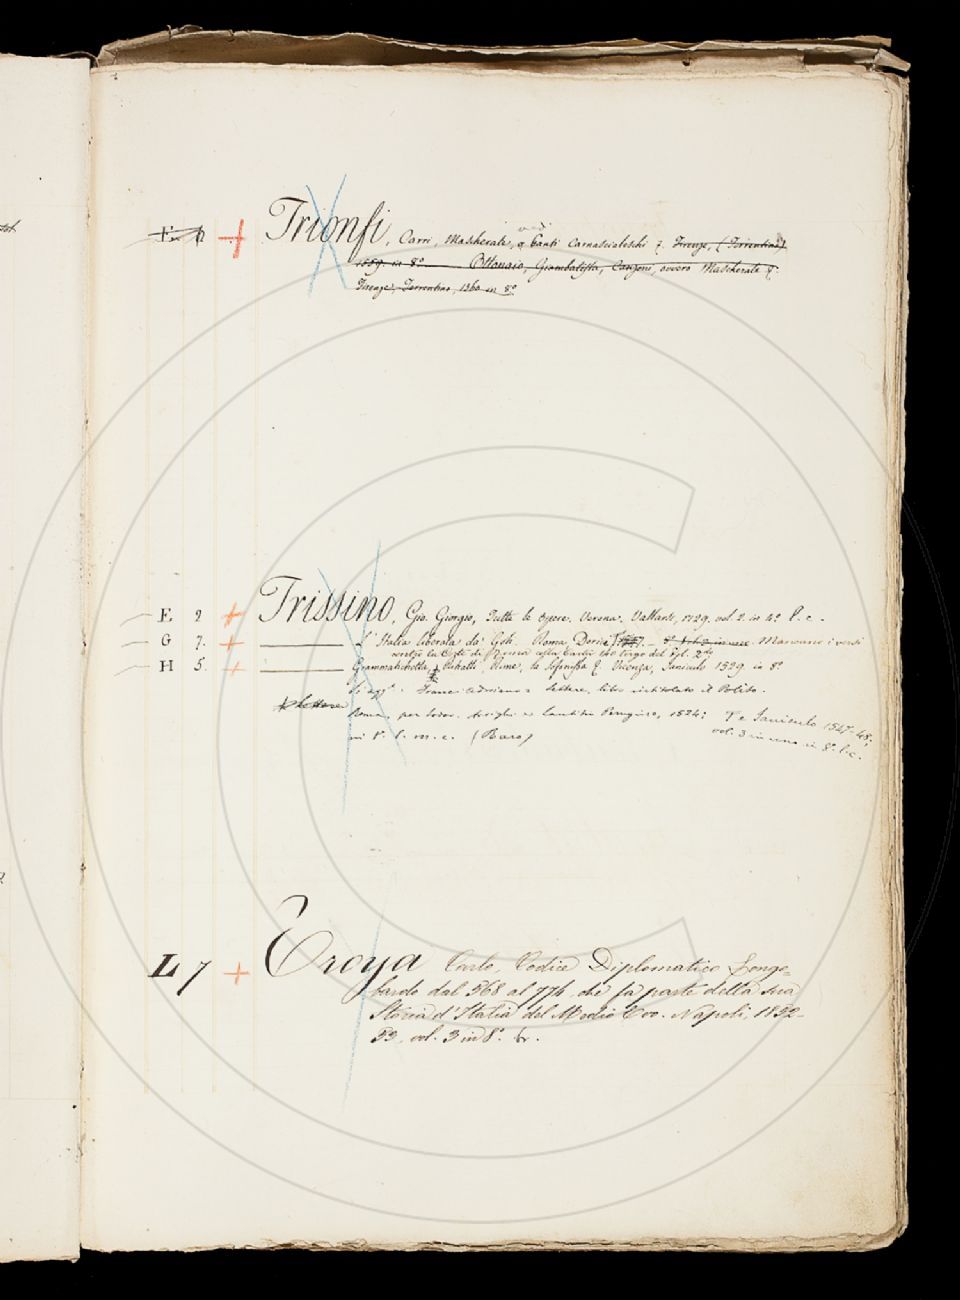 E. Trionfi, Carri, Mascherate, o Canti Carnascialeschi &. Firenze, (Torrentino)
1559. in 8º Ottonaio, Giambatista, Canzoni, ovvero Mascherate &.
Firenze, Torrentino, 1560 in 8º
E 2 Trissino, Gio. Giorgio, Tutte le opere. Verona, Vallarsi, 1729. vol. 2. in 4º l. c.
G 7. L'Italia liberata da' Goti. Roma, Dorici, 1547. Mancano i versi
contro la Corte di Roma alla Carta tergo del vol. 2do
H 5. Grammatichetta, Ritratti, Rime, la Sofonisba &. Vicenza, Janiculo 1529. in 8º
Franci Adriano Lettere, libro intitolato il Polito.
Lettere
Roma, per Lodov. Arrighi e Lautitio Perugino, 1524; T. e Janiculo 1547-48,
in 8º. l. m. c. (Baro) vol. 3 in uno in 8º. l. c.
L 7 Troya Carlo, Codice Diplomatico Longo-
bardo dal 568 al 774, che fa parte della sua
Storia d'Italia del Medio Evo. Napoli, 1852-
53, vol. 3 in 8º. br.